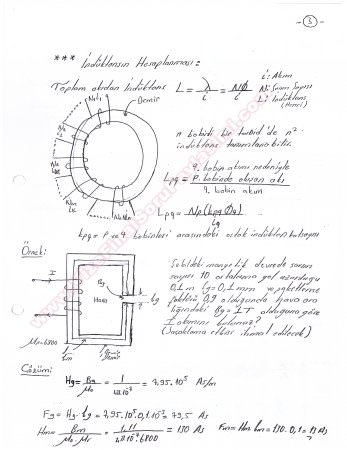 - 5 -
*** İndüktansın Hesaplanması:
Toplam akıdan İndüktans L = λ/i = NØ/i
i: Akım
N: Sarım Sayısı
L: İndüktans (Henri)
Demir
n bobinli bir toroid'de n²
indüktans tanımlanabilir.
Lpq = q. bobin akımı nedeniyle p. bobinde oluşan akı / q. bobin akım
Lpq = Np(kpqØq)/iq
kpq = p ve q bobinleri arasındaki ortak indüklen katsayısı
Örnek:
I
Bg
Hom
lg
μr=6800
lm
Şekildeki manyetik devrede sarım
sayısı 10 ortalama yol uzunluğu
0,1 m lg=0,1mm ve paketleme
faktörü 0,9 olduğunda hava ara
lığındaki Bg=1T olduğuna göre
I akımını bulunuz?
(saçaklama etkisi ihmal edilecek)
Çözüm:
Hg = Bg/μ0 = 1/4π10⁻⁷ = 7,95.10⁵ As/m
Fg = Hg.lg = 7,95.10⁵.0,1.10⁻³ = 79,5 As
Hm = Bm/μ0.μr = 1,11/4π.10⁻⁷.6800 = 130 As
Fm = Hm lm = 130.0,1 = 13 As